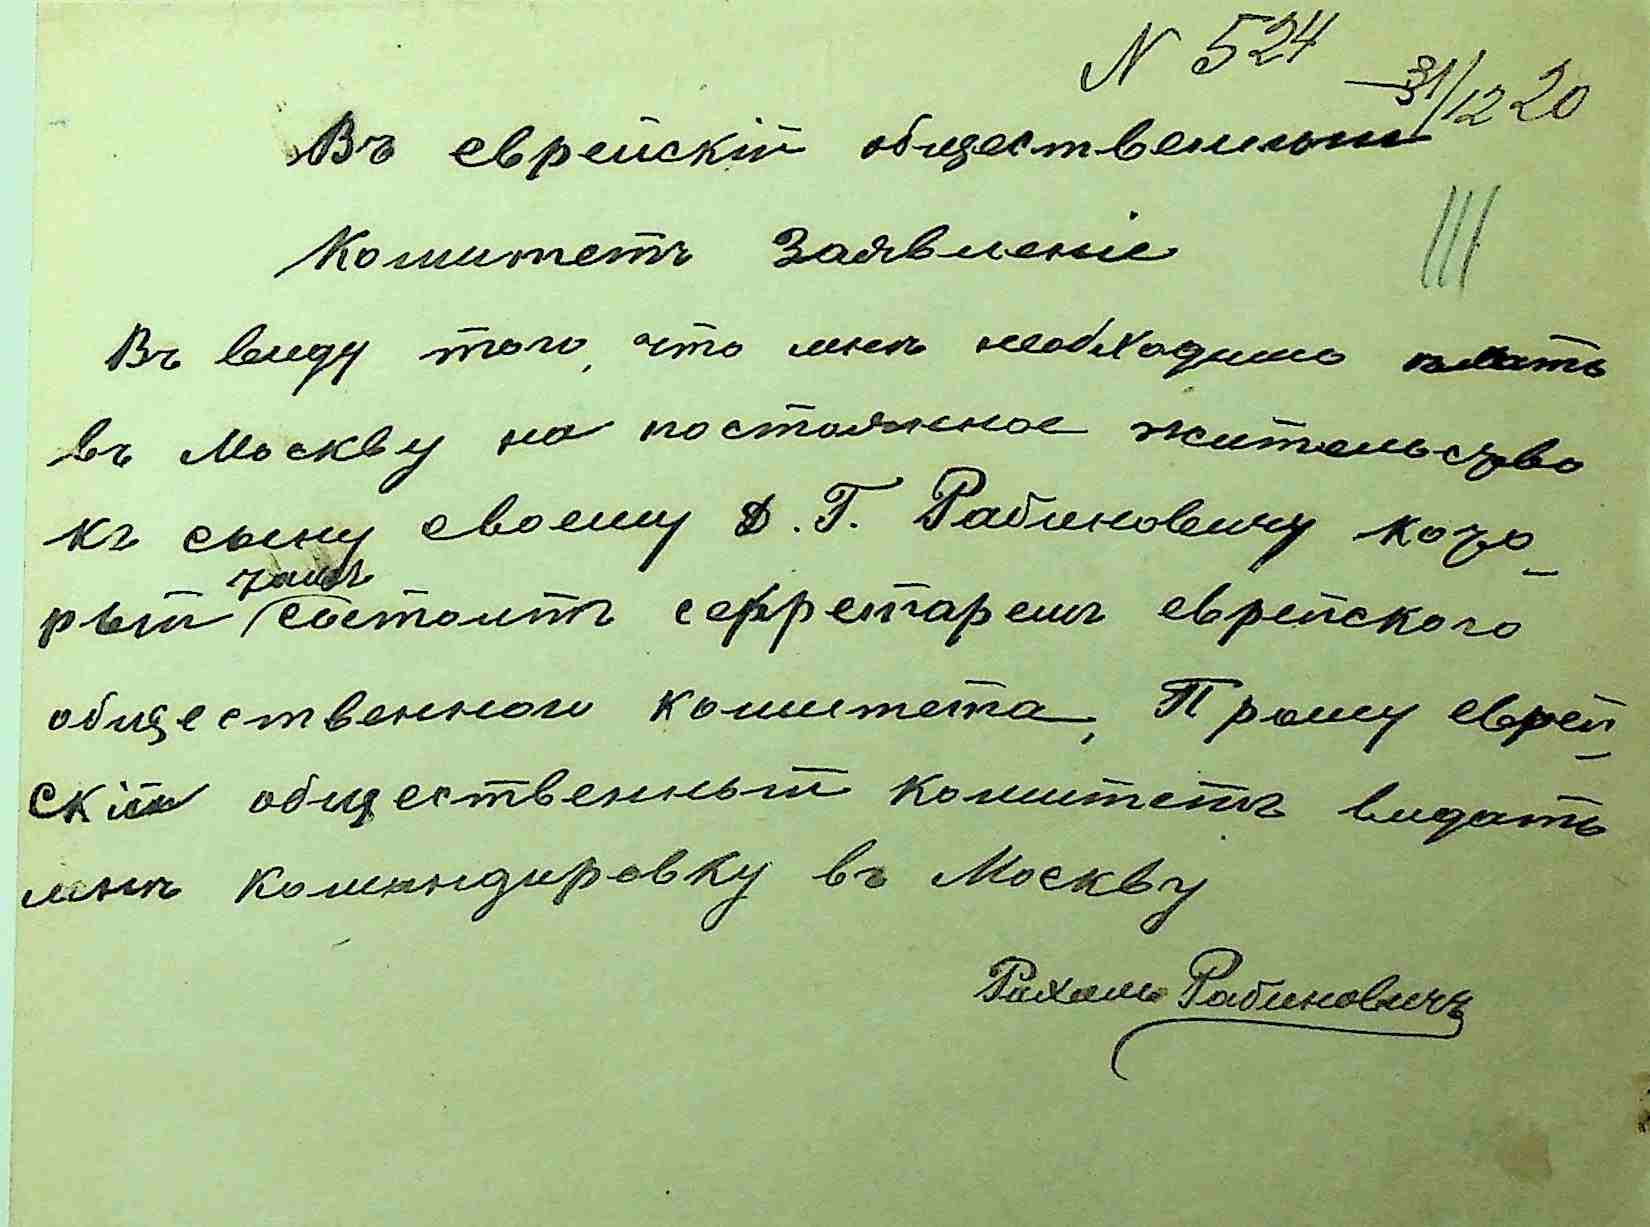 N 524
31/12 20
Въ еврейскій общественный
Комитетъ Заявленіе
III
Въ виду того, что мнѣ необходимо ѣхать
въ Москву на постоянное жительство
къ сыну своему Д. Г. Рабиновичу кото-
тамъ
рый состоитъ секретаремъ еврейского
общественного комитета, Прошу еврей-
скій общественный комитетъ видать
мнѣ командировку въ Москву
Рахиль Рабиновичъ